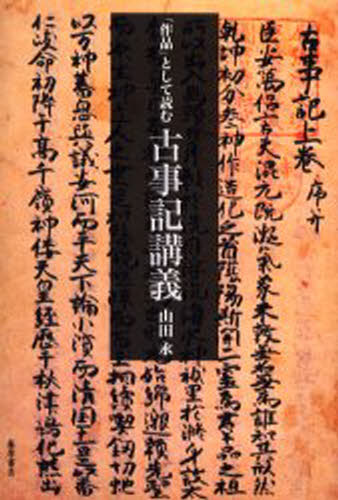 「作品」として読む
古事記講義
山田 永
藤原書店
古事記上巻 序并
臣安萬侶言夫混元既凝氣象未效無名無為誰知其形然
乾坤初分参神作造化之首陰陽斯開二霊為群品之祖
以万神蕃息與議安河而平天下論小濱而清国土是以番
仁岐命初降于高千嶺神倭天皇経歴于秋津嶋化熊出